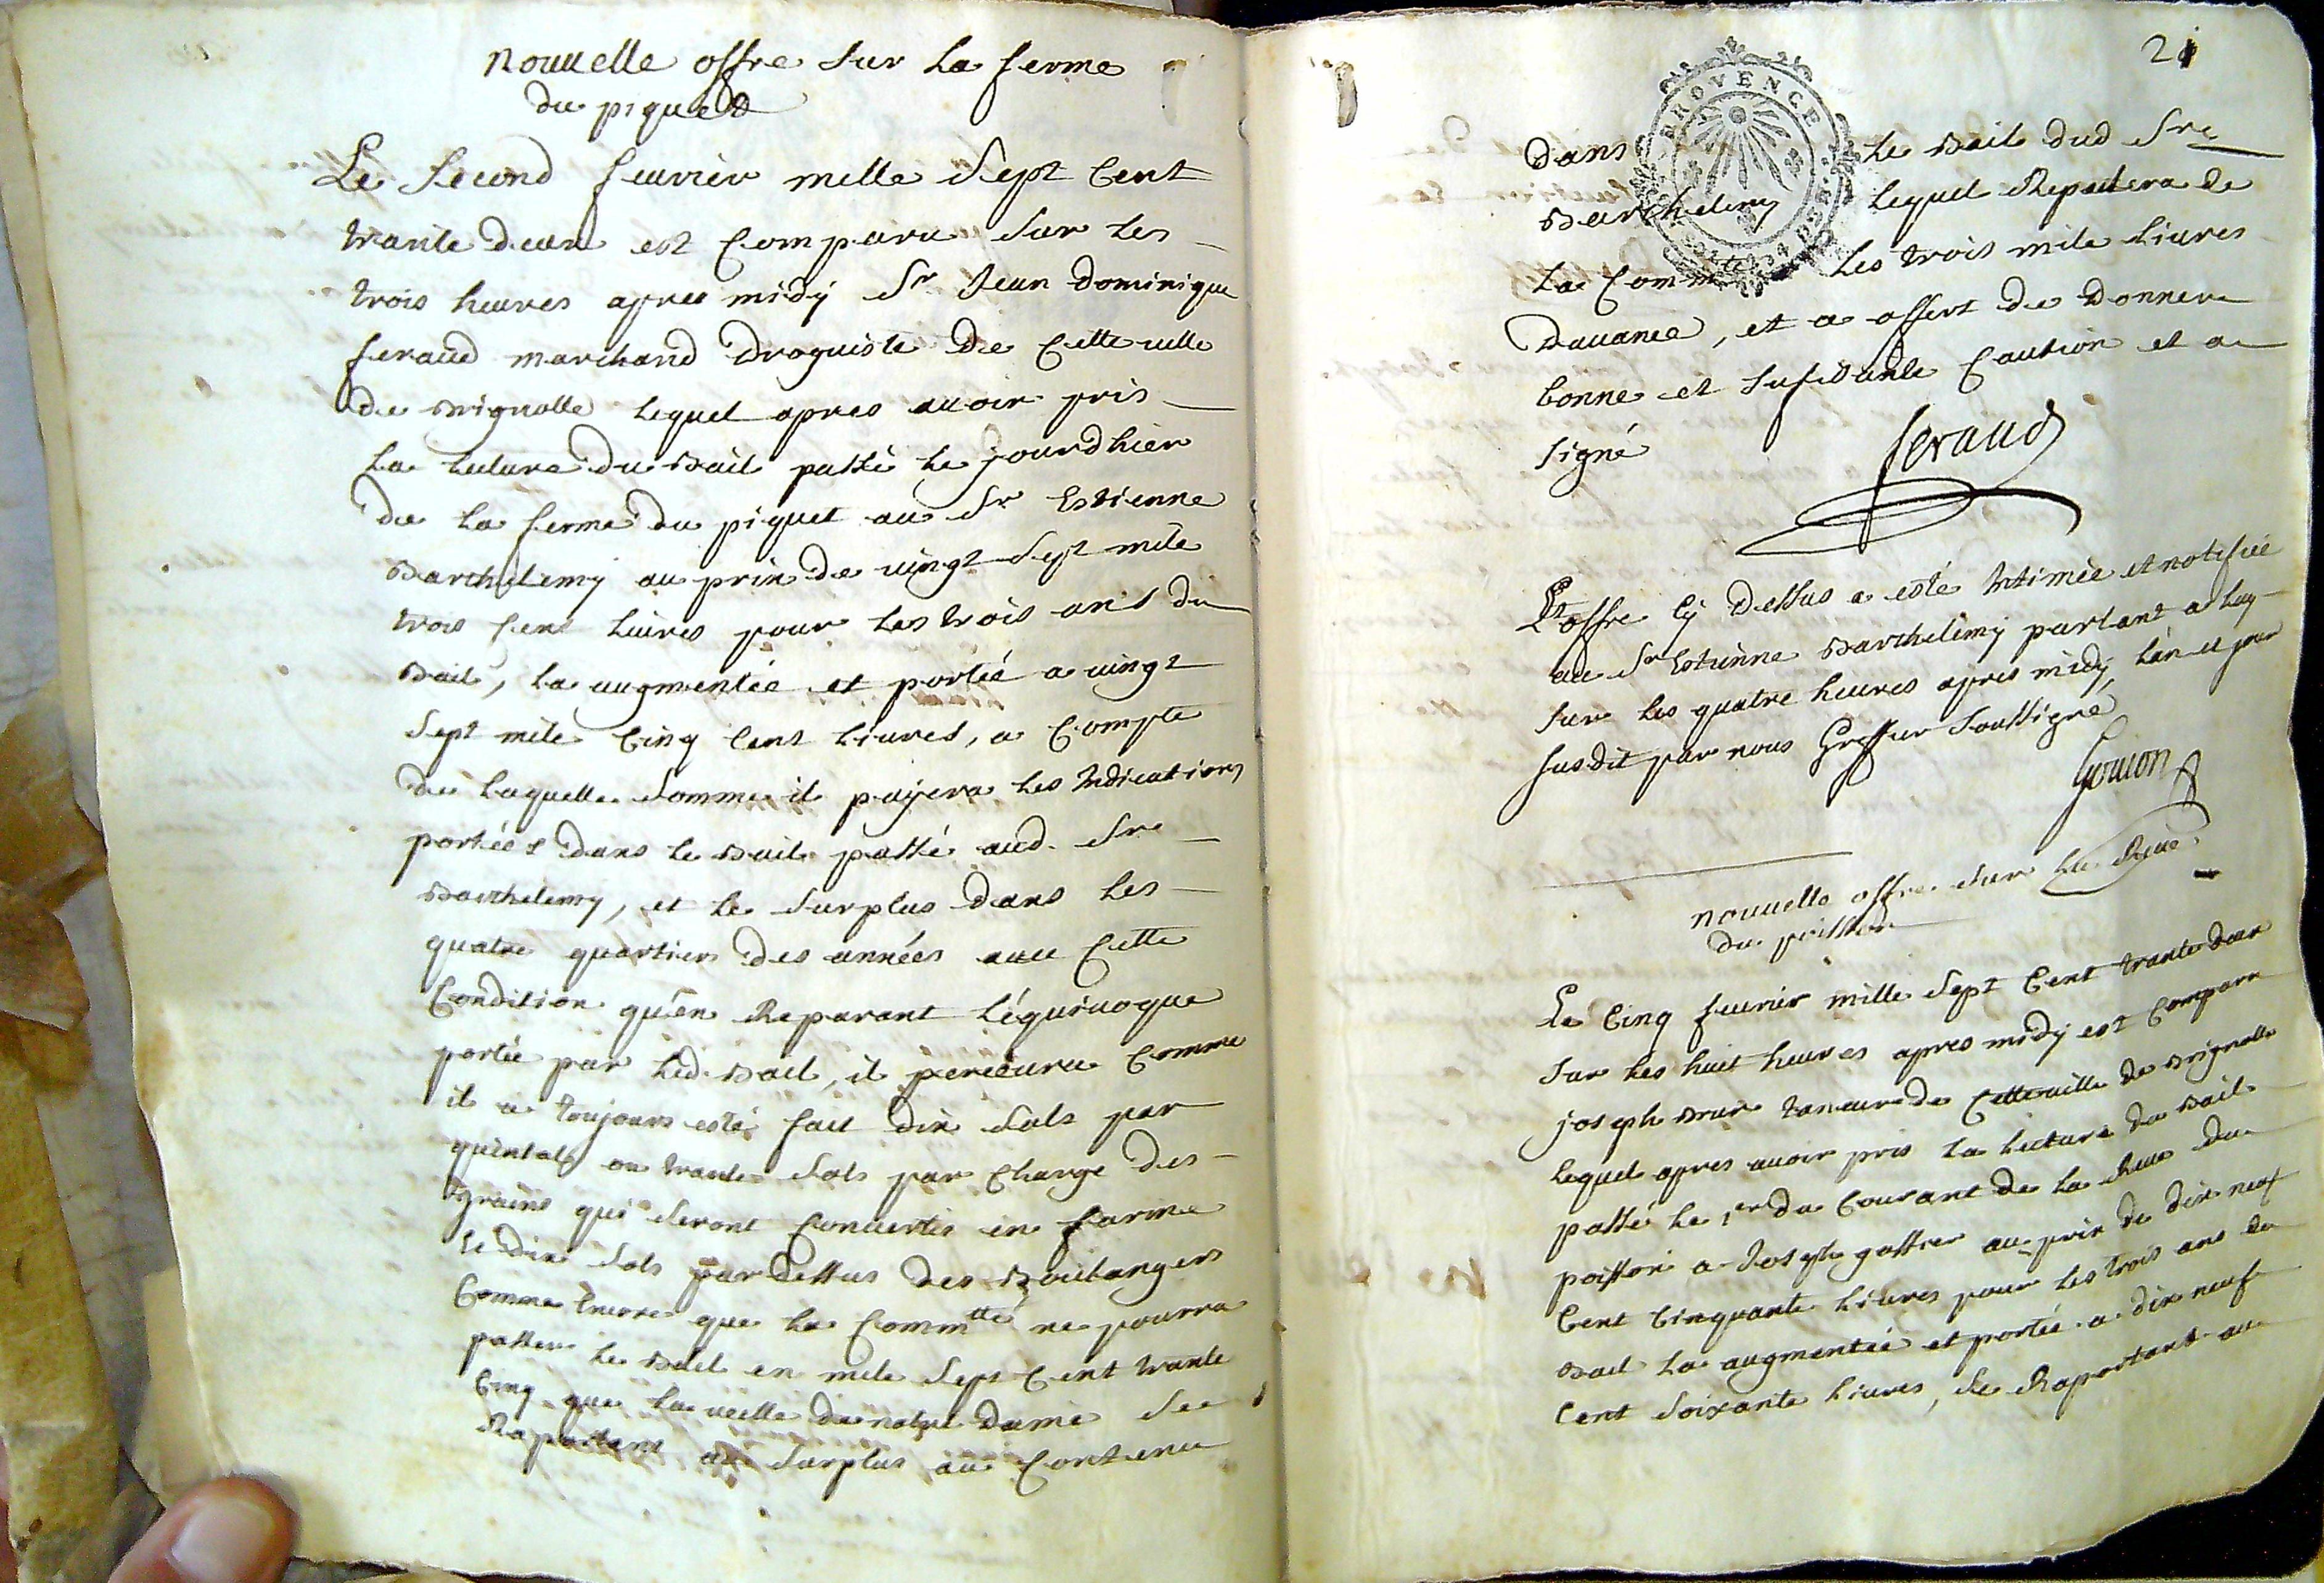 nouuelle offre sur La ferme
du piquet
Le second feurier mille sept Cent
trante deux est Comparu sur les
trois heures apres midy Sr Jean Dominique
feraud marchand Droguiste De Cette uille
de Brignolle lequel apres auoir pris
La lecture Du Bail passé le jourdhier
de la ferme du piquet au Sr Estienne
Barthelemy au prix De uingt sept mile
trois Cent liures pour les trois ans du
Bail, la augmentée et portée a uingt
sept mile Cinq Cent liures, a Compte
de laquelle somme il payera les Indications
portées dans le Bail passé aud. Sr
Barthelemy, et le surplus dans les
quatre quartiers des années auec Cette
Condition qu'en Reparant léquiuoque
portée par led. Bail, il perceura Comme
il a toujours esté fait dix sols par
quintal ou trante sols par Charge des
grains qui seront Conuertis en farine
le dix sols par dessus des Boulangers
Comme encore que la Commtté ne pourra
passer le Bail en mile sept Cent trante
Cinq que la ueille de notre Dame se
Raportant au surplus au Contenu
21
PROVENCE
Dans le Bail dud Sr
Barthelemy lequel Reputera de
La Commté les trois mile liures
Dauance, et a offert de Donner
bonne et sufisante Caution et a
signé
feraud
L'offre Cy dessus a esté Intimée et notifiée
au Sr Estienne Barthelemy parlant a luy
sur les quatre heures apres midy, l'an et jour
susdit par nous Greffier soussigné
Gouion
nouuelle offre sur La Reue
du poisson
Le Cinq feurier mille sept Cent trante deux
sur les huit heures apres midy est Comparu
joseph Brun taneur de Cette uille de Brignolle
lequel apres auoir pris la lecture du Bail
passé le 1er du Courant de la Reue du
poisson a Joseph gassier au prix de dix neuf
Cent Cinquante liures pour les trois ans du
Bail la augmentée et portée a dix neuf
Cent soixante liures, se Raportant au